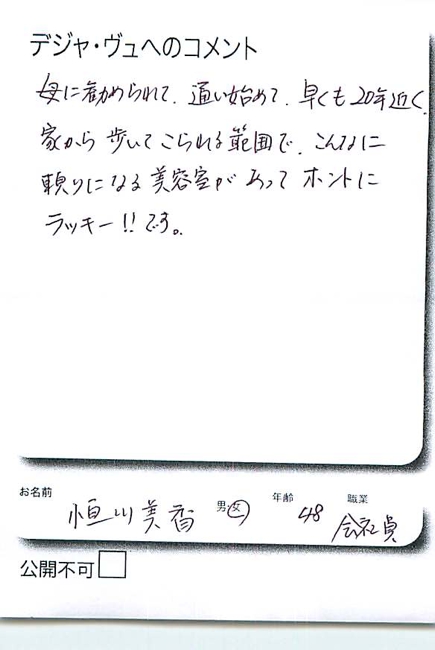 デジャ・ヴュへのコメント
母に勧められて、通い始めて、早くも20年近く、
家から歩いてこられる範囲で、こんなに
頼りになる美容室があってホントに
ラッキー!!です。
お名前 恒川美香 男 女 年齢 48 職業 会社員
公開不可